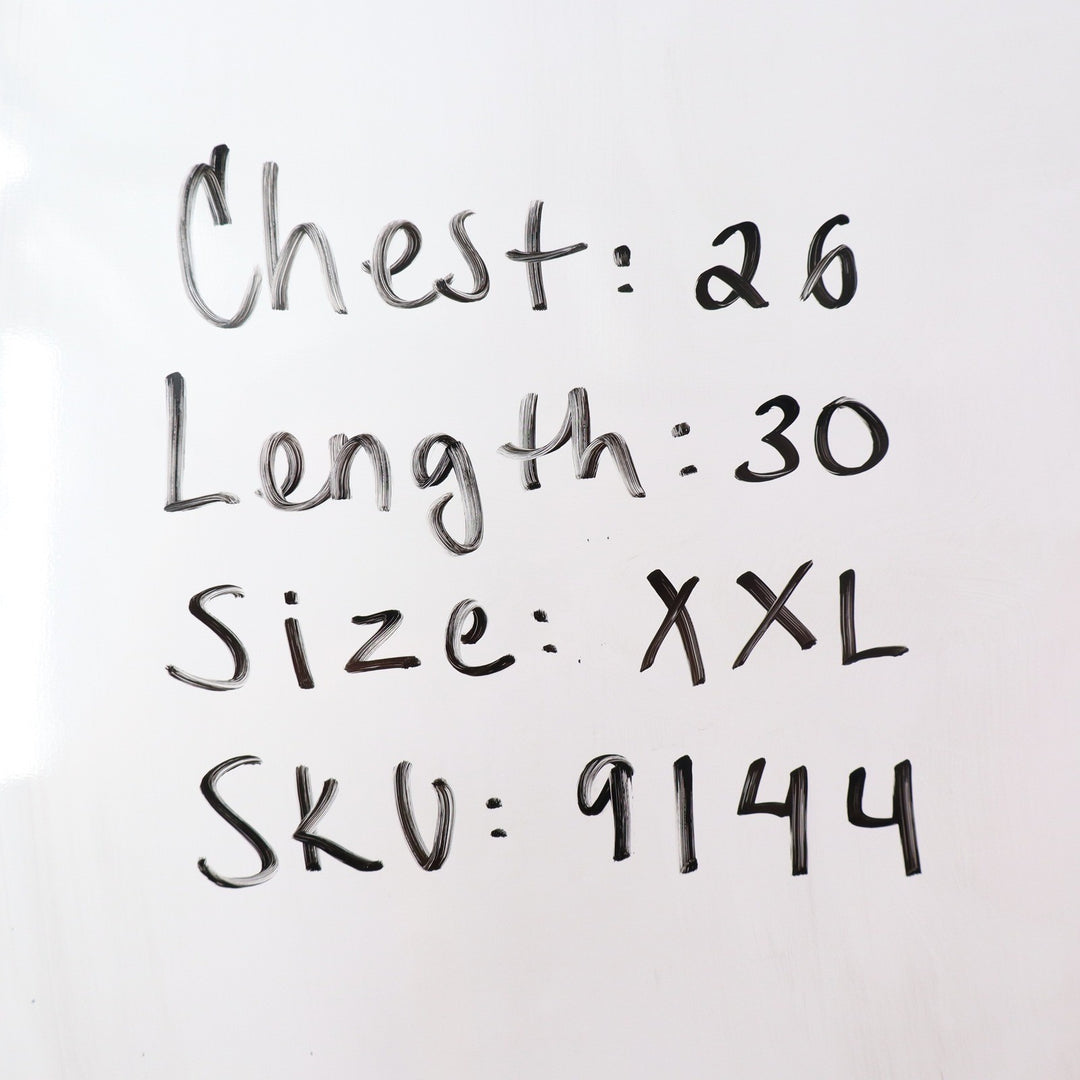 Chest: 26
Length: 30
Size: XXL
SKU: 9144